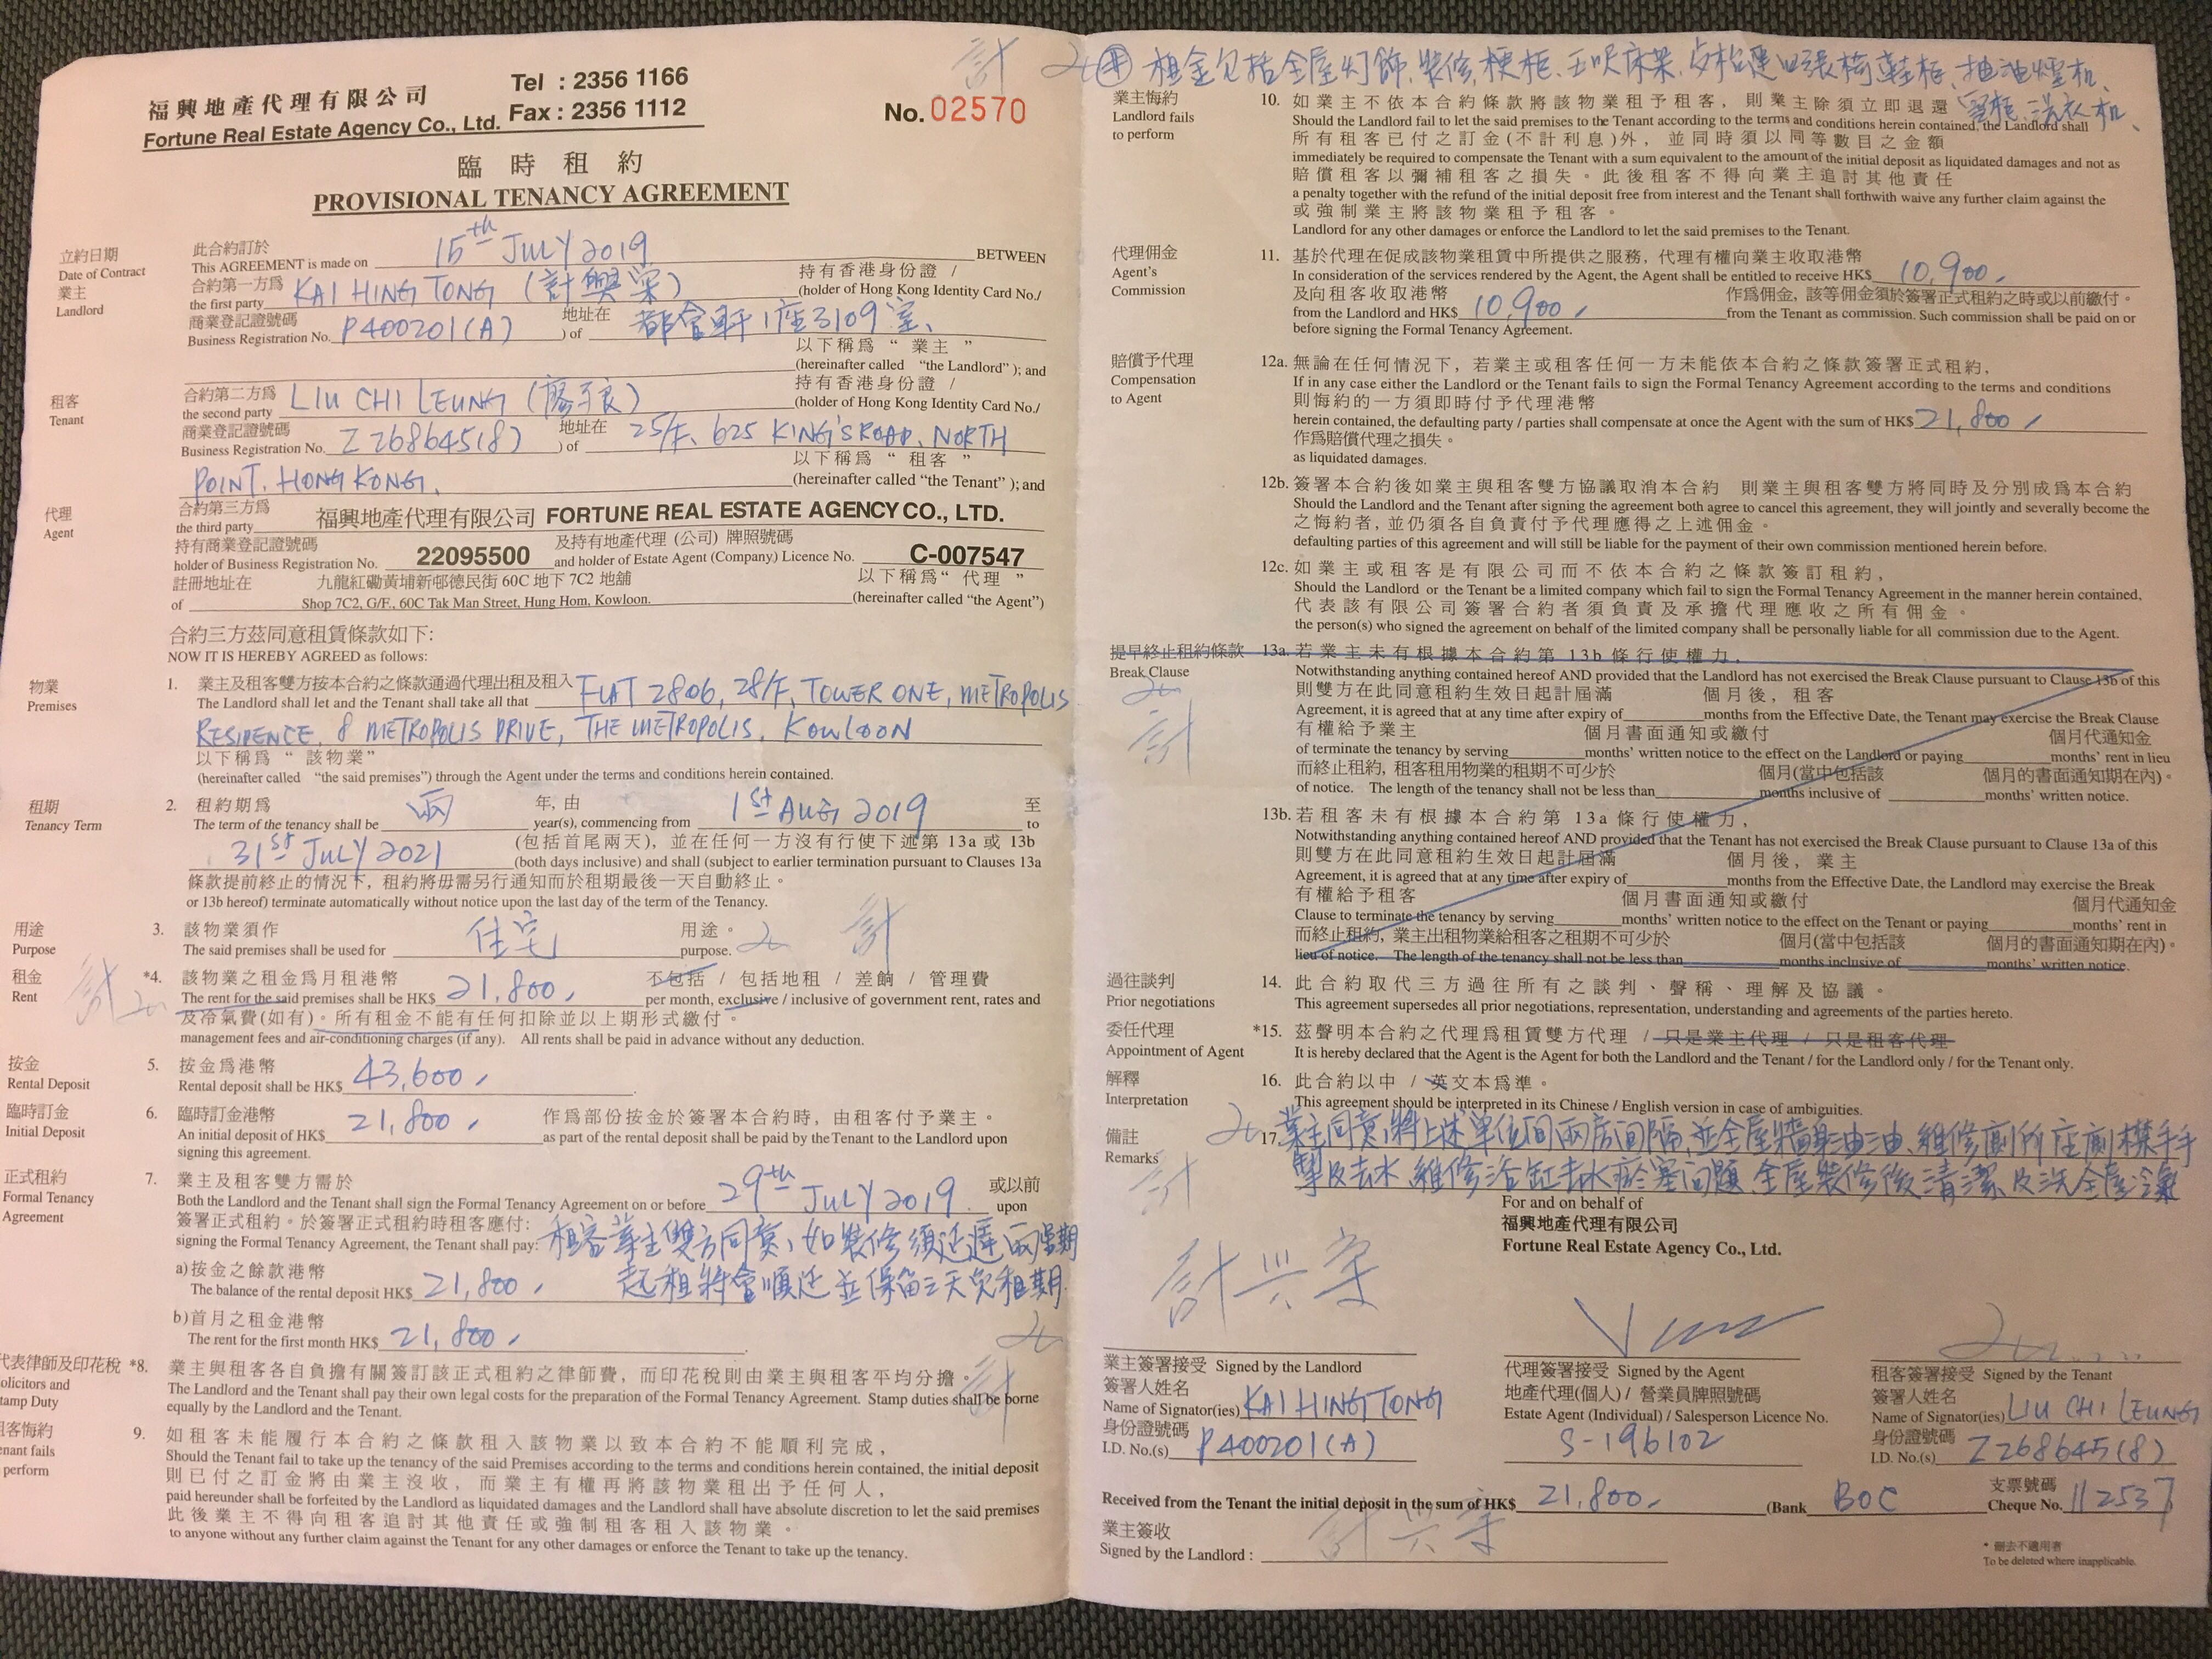 福興地產代理有限公司
Fortune Real Estate Agency Co., Ltd.
Tel : 2356 1166
Fax : 2356 1112
No. 02570
臨時租約
PROVISIONAL TENANCY AGREEMENT
立約日期
Date of Contract
此合約訂於
This AGREEMENT is made on 15th JULY 2019 BETWEEN
業主
Landlord
合約第一方爲 持有香港身份證 /
the first party KAI HING TONG (計興 (holder of Hong Kong Identity Card No./
商業登記證號碼 地址在
Business Registration No. P400201(A) ) of 都會軒1座3109室、
以下稱爲 " 業主 "
(hereinafter called "the Landlord" ); and
租客
Tenant
合約第二方爲 持有香港身份證 /
the second party LIU CHI LEUNG (廖子良) (holder of Hong Kong Identity Card No./
商業登記證號碼 地址在
Business Registration No. Z268645(8) ) of 25/F, 625 KING'S ROAD, NORTH
以下稱爲 " 租客 "
POINT, HONG KONG, (hereinafter called "the Tenant" ); and
代理
Agent
合約第三方爲
the third party 福興地產代理有限公司 FORTUNE REAL ESTATE AGENCY CO., LTD.
持有商業登記證號碼 及持有地產代理 (公司) 牌照號碼
holder of Business Registration No. 22095500 and holder of Estate Agent (Company) Licence No. C-007547
註冊地址在 九龍紅磡黃埔新邨德民街 60C 地下 7C2 地舖 以下稱爲" 代理 "
of Shop 7C2, G/F., 60C Tak Man Street, Hung Hom, Kowloon. (hereinafter called "the Agent")
合約三方茲同意租賃條款如下:
NOW IT IS HEREBY AGREED as follows:
物業
Premises
1. 業主及租客雙方按本合約之條款通過代理出租及租入
The Landlord shall let and the Tenant shall take all that FLAT 2806, 28/F, TOWER ONE, METROPOLIS
RESIDENCE, 8 METROPOLIS DRIVE, THE METROPOLIS, KOWLOON
以下稱爲 " 該物業"
(hereinafter called "the said premises") through the Agent under the terms and conditions herein contained.
租期
Tenancy Term
2. 租約期爲 年, 由 至
The term of the tenancy shall be 兩 year(s), commencing from 1st AUG 2019 to
31st JULY 2021 (包括首尾兩天), 並在任何一方沒有行使下述第 13a 或 13b
(both days inclusive) and shall (subject to earlier termination pursuant to Clauses 13a
條款提前終止的情況下, 租約將毋需另行通知而於租期最後一天自動終止。
or 13b hereof) terminate automatically without notice upon the last day of the term of the Tenancy.
用途
Purpose
3. 該物業須作 用途。
The said premises shall be used for 住宅 purpose. 計
租金
Rent
計
*4. 該物業之租金爲月租港幣 不包括 / 包括地租 / 差餉 / 管理費
The rent for the said premises shall be HK$ 21,800, per month, exclusive / inclusive of government rent, rates and
及冷氣費(如有)。所有租金不能有任何扣除並以上期形式繳付。
management fees and air-conditioning charges (if any). All rents shall be paid in advance without any deduction.
按金
Rental Deposit
5. 按金爲港幣
Rental deposit shall be HK$ 43,600,
臨時訂金
Initial Deposit
6. 臨時訂金港幣 作爲部份按金於簽署本合約時, 由租客付予業主。
An initial deposit of HK$ 21,800, as part of the rental deposit shall be paid by the Tenant to the Landlord upon
signing this agreement.
正式租約
Formal Tenancy
Agreement
7. 業主及租客雙方需於 或以前
Both the Landlord and the Tenant shall sign the Formal Tenancy Agreement on or before 29th JULY 2019 upon
簽署正式租約。於簽署正式租約時租客應付:
signing the Formal Tenancy Agreement, the Tenant shall pay: 租客業主雙方同意, 如裝修須延遲兩星期
a)按金之餘款港幣 起租將會順延並保留三天免租期
The balance of the rental deposit HK$ 21,800,
b)首月之租金港幣
The rent for the first month HK$ 21,800,
代表律師及印花稅
olicitors and
tamp Duty
*8. 業主與租客各自負擔有關簽訂該正式租約之律師費, 而印花稅則由業主與租客平均分擔。
The Landlord and the Tenant shall pay their own legal costs for the preparation of the Formal Tenancy Agreement. Stamp duties shall be borne
equally by the Landlord and the Tenant.
計
租客悔約
enant fails
perform
9. 如租客未能履行本合約之條款租入該物業以致本合約不能順利完成,
Should the Tenant fail to take up the tenancy of the said Premises according to the terms and conditions herein contained, the initial deposit
則已付之訂金將由業主沒收, 而業主有權再將該物業租出予任何人,
paid hereunder shall be forfeited by the Landlord as liquidated damages and the Landlord shall have absolute discretion to let the said premises
此後業主不得向租客追討其他責任或強制租客租入該物業。
to anyone without any further claim against the Tenant for any other damages or enforce the Tenant to take up the tenancy.
計
租金包括全屋灯飾、裝修、梗柜、五呎床架、 枱連四張椅、鞋柜、抽油煙机、
洗衣机、
業主悔約
Landlord fails
to perform
10. 如業主不依本合約條款將該物業租予租客, 則業主除須立即退還
Should the Landlord fail to let the said premises to the Tenant according to the terms and conditions herein contained, the Landlord shall
所有租客已付之訂金(不計利息)外, 並同時須以同等數目之金額
immediately be required to compensate the Tenant with a sum equivalent to the amount of the initial deposit as liquidated damages and not as
賠償租客以彌補租客之損失。此後租客不得向業主追討其他責任
a penalty together with the refund of the initial deposit free from interest and the Tenant shall forthwith waive any further claim against the
或強制業主將該物業租予租客。
Landlord for any other damages or enforce the Landlord to let the said premises to the Tenant.
代理佣金
Agent's
Commission
11. 基於代理在促成該物業租賃中所提供之服務, 代理有權向業主收取港幣
In consideration of the services rendered by the Agent, the Agent shall be entitled to receive HK$ 10,900,
及向租客收取港幣 作爲佣金, 該等佣金須於簽署正式租約之時或以前繳付。
from the Landlord and HK$ 10,900, from the Tenant as commission. Such commission shall be paid on or
before signing the Formal Tenancy Agreement.
賠償予代理
Compensation
to Agent
12a. 無論在任何情況下, 若業主或租客任何一方未能依本合約之條款簽署正式租約,
If in any case either the Landlord or the Tenant fails to sign the Formal Tenancy Agreement according to the terms and conditions
則悔約的一方須即時付予代理港幣
herein contained, the defaulting party / parties shall compensate at once the Agent with the sum of HK$ 21,800,
作爲賠償代理之損失。
as liquidated damages.
12b. 簽署本合約後如業主與租客雙方協議取消本合約 則業主與租客雙方將同時及分別成爲本合約
Should the Landlord and the Tenant after signing the agreement both agree to cancel this agreement, they will jointly and severally become the
之悔約者, 並仍須各自負責付予代理應得之上述佣金。
defaulting parties of this agreement and will still be liable for the payment of their own commission mentioned herein before.
12c. 如業主或租客是有限公司而不依本合約之條款簽訂租約,
Should the Landlord or the Tenant be a limited company which fail to sign the Formal Tenancy Agreement in the manner herein contained,
代表該有限公司簽署合約者須負責及承擔代理應收之所有佣金。
the person(s) who signed the agreement on behalf of the limited company shall be personally liable for all commission due to the Agent.
提早終止租約條款
Break Clause
計
13a. 若業主未有根據本合約第 13b 條行使權力,
Notwithstanding anything contained hereof AND provided that the Landlord has not exercised the Break Clause pursuant to Clause 13b of this
則雙方在此同意租約生效日起計屆滿 個月後, 租客
Agreement, it is agreed that at any time after expiry of months from the Effective Date, the Tenant may exercise the Break Clause
有權給予業主 個月書面通知或繳付 個月代通知金
of terminate the tenancy by serving months' written notice to the effect on the Landlord or paying months' rent in lieu
而終止租約, 租客租用物業的租期不可少於 個月(當中包括該 個月的書面通知期在內)。
of notice. The length of the tenancy shall not be less than months inclusive of months' written notice.
13b. 若租客未有根據本合約第 13a 條行使權力,
Notwithstanding anything contained hereof AND provided that the Tenant has not exercised the Break Clause pursuant to Clause 13a of this
則雙方在此同意租約生效日起計屆滿 個月後, 業主
Agreement, it is agreed that at any time after expiry of months from the Effective Date, the Landlord may exercise the Break
有權給予租客 個月書面通知或繳付 個月代通知金
Clause to terminate the tenancy by serving months' written notice to the effect on the Tenant or paying months' rent in
而終止租約, 業主出租物業給租客之租期不可少於 個月(當中包括該 個月的書面通知期在內)。
lieu of notice. The length of the tenancy shall not be less than months inclusive of months' written notice.
過往談判
Prior negotiations
14. 此合約取代三方過往所有之談判、聲稱、理解及協議。
This agreement supersedes all prior negotiations, representation, understanding and agreements of the parties hereto.
委任代理
Appointment of Agent
*15. 茲聲明本合約之代理爲租賃雙方代理 / 只是業主代理 / 只是租客代理
It is hereby declared that the Agent is the Agent for both the Landlord and the Tenant / for the Landlord only / for the Tenant only.
解釋
Interpretation
16. 此合約以中 / 英文本爲準。
This agreement should be interpreted in its Chinese / English version in case of ambiguities.
備註
Remarks
計
17. 業主同意將上述單位間兩房間隔, 並全屋牆身油油、維修廁所座廁樣手手
掣及去水、維修浴缸去水瘀塞问題、全屋裝修後清潔及洗全屋冷氣
For and on behalf of
福興地產代理有限公司
Fortune Real Estate Agency Co., Ltd.
業主簽署接受 Signed by the Landlord
簽署人姓名
Name of Signator(ies) KAI HING TONG
身份證號碼
I.D. No.(s) P400201(A)
代理簽署接受 Signed by the Agent
地產代理(個人) / 營業員牌照號碼
Estate Agent (Individual) / Salesperson Licence No.
S-196102
租客簽署接受 Signed by the Tenant
簽署人姓名
Name of Signator(ies) LIU CHI LEUNG
身份證號碼
I.D. No.(s) Z268645(8)
Received from the Tenant the initial deposit in the sum of HK$ 21,800, (Bank BOC 支票號碼 Cheque No. 112537
業主簽收
Signed by the Landlord :
* 刪去不適用者
To be deleted where inapplicable.